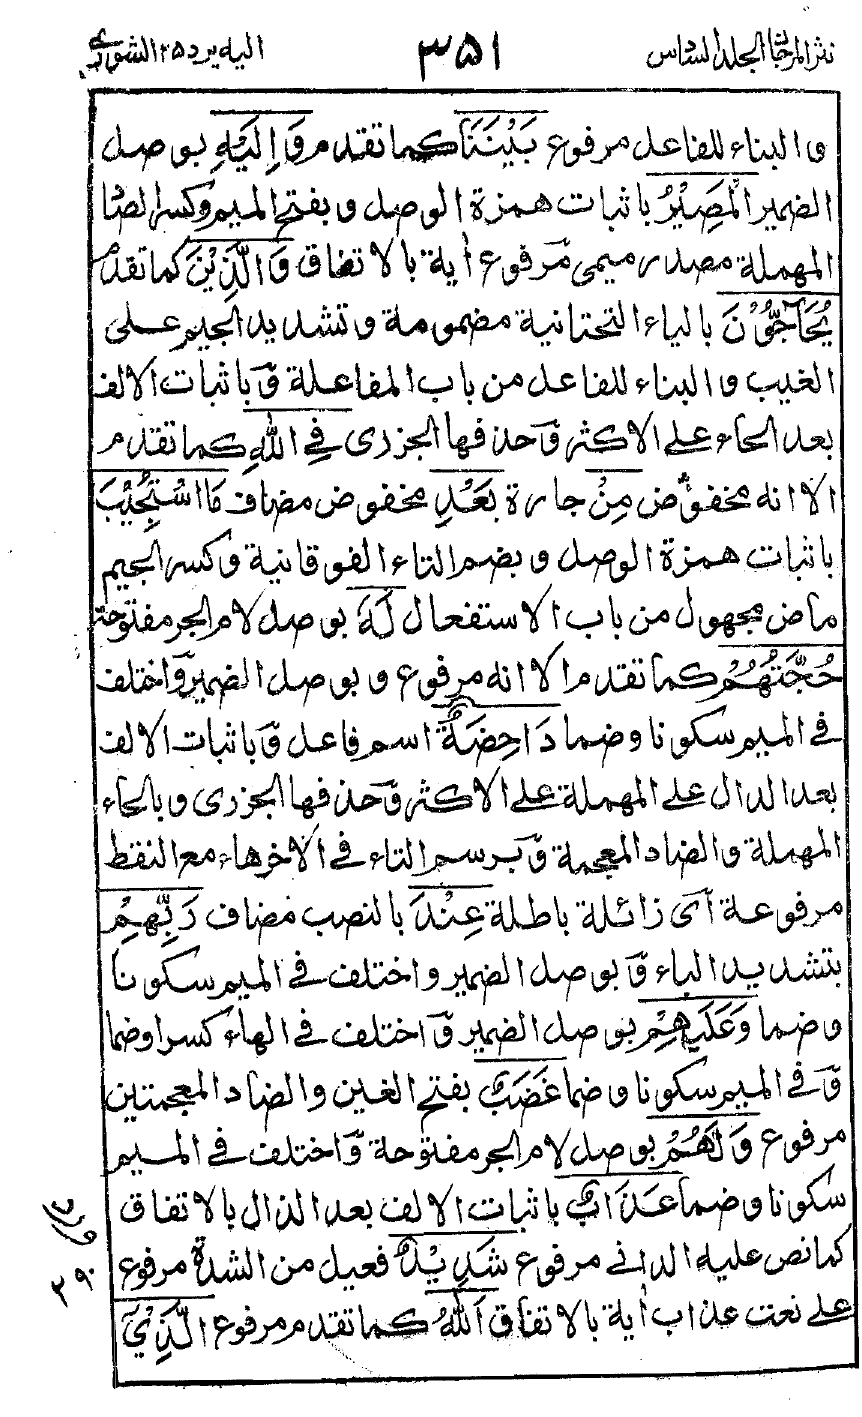 نثر المرجان المجلد السادس ٣٥١ اليه يرد ٢٥ الشورى
والبناء للفاعل مرفوع بَيْنَنَا كما تقدم وَإِلَيْهِ بوصل
الضمير الْمَصِيْرُ باثبات همزة الوصل وبفتح الميم وكسر الصاد
المهملة مصدر ميمى مرفوع اٰية بالاتفاق وَالَّذِيْنَ كما تقدم
يُحَآجُّوْنَ بالياء التحتانية مضمومة وتشديد الجيم على
الغيب والبناء للفاعل من باب المفاعلة وَباثبات الالف
بعد الحاء على الاكثر وَحذفها الجزرى فِي اللّٰهِ كما تقدم
الا انه مخفوض مِنْ جارة بَعْدِ مخفوض مضاف مَا اسْتُجِيْبَ
باثبات همزة الوصل وبضم التاء الفوقانية وكسر الجيم
ماض مجهول من باب الاستفعال لَهٗ بوصل لام الجر مفتوحة
حُجَّتُهُمْ كما تقدم الا انه مرفوع وبوصل الضمير وَاختلف
فى الميم سكونا وضما دَاحِضَةٌ اسم فاعل وَباثبات الالف
بعد الدال على المهملة على الاكثر وَحذفها الجزرى وبالحاء
المهملة والضاد المعجمة وَبرسم التاء فى الاخرهاء مع النقط
مرفوعة اَى زائلة باطلة عِنْدَ بالنصب مضاف رَبِّهِمْ
بتشديد الباء وَبوصل الضمير واختلف فى الميم سكونا
وضما وَعَلَيْهِمْ بوصل الضمير وَاختلف فى الهاء كسرا وضما
وَفى الميم سكونا وضما غَضَبٌ بفتح الغين والضاد المعجمتين
مرفوع وَلَهُمْ بوصل لام الجر مفتوحة وَاختلف فى الميم
سكونا وضما عَذَابٌ باثبات الالف بعد الذال بالاتفاق
كما نص عليه الدانى مرفوع شَدِيْدٌ فعيل من الشدة مرفوع
على نعت عذاب اٰية بالاتفاق اَللّٰهُ كما تقدم مرفوع الَّذِيْ